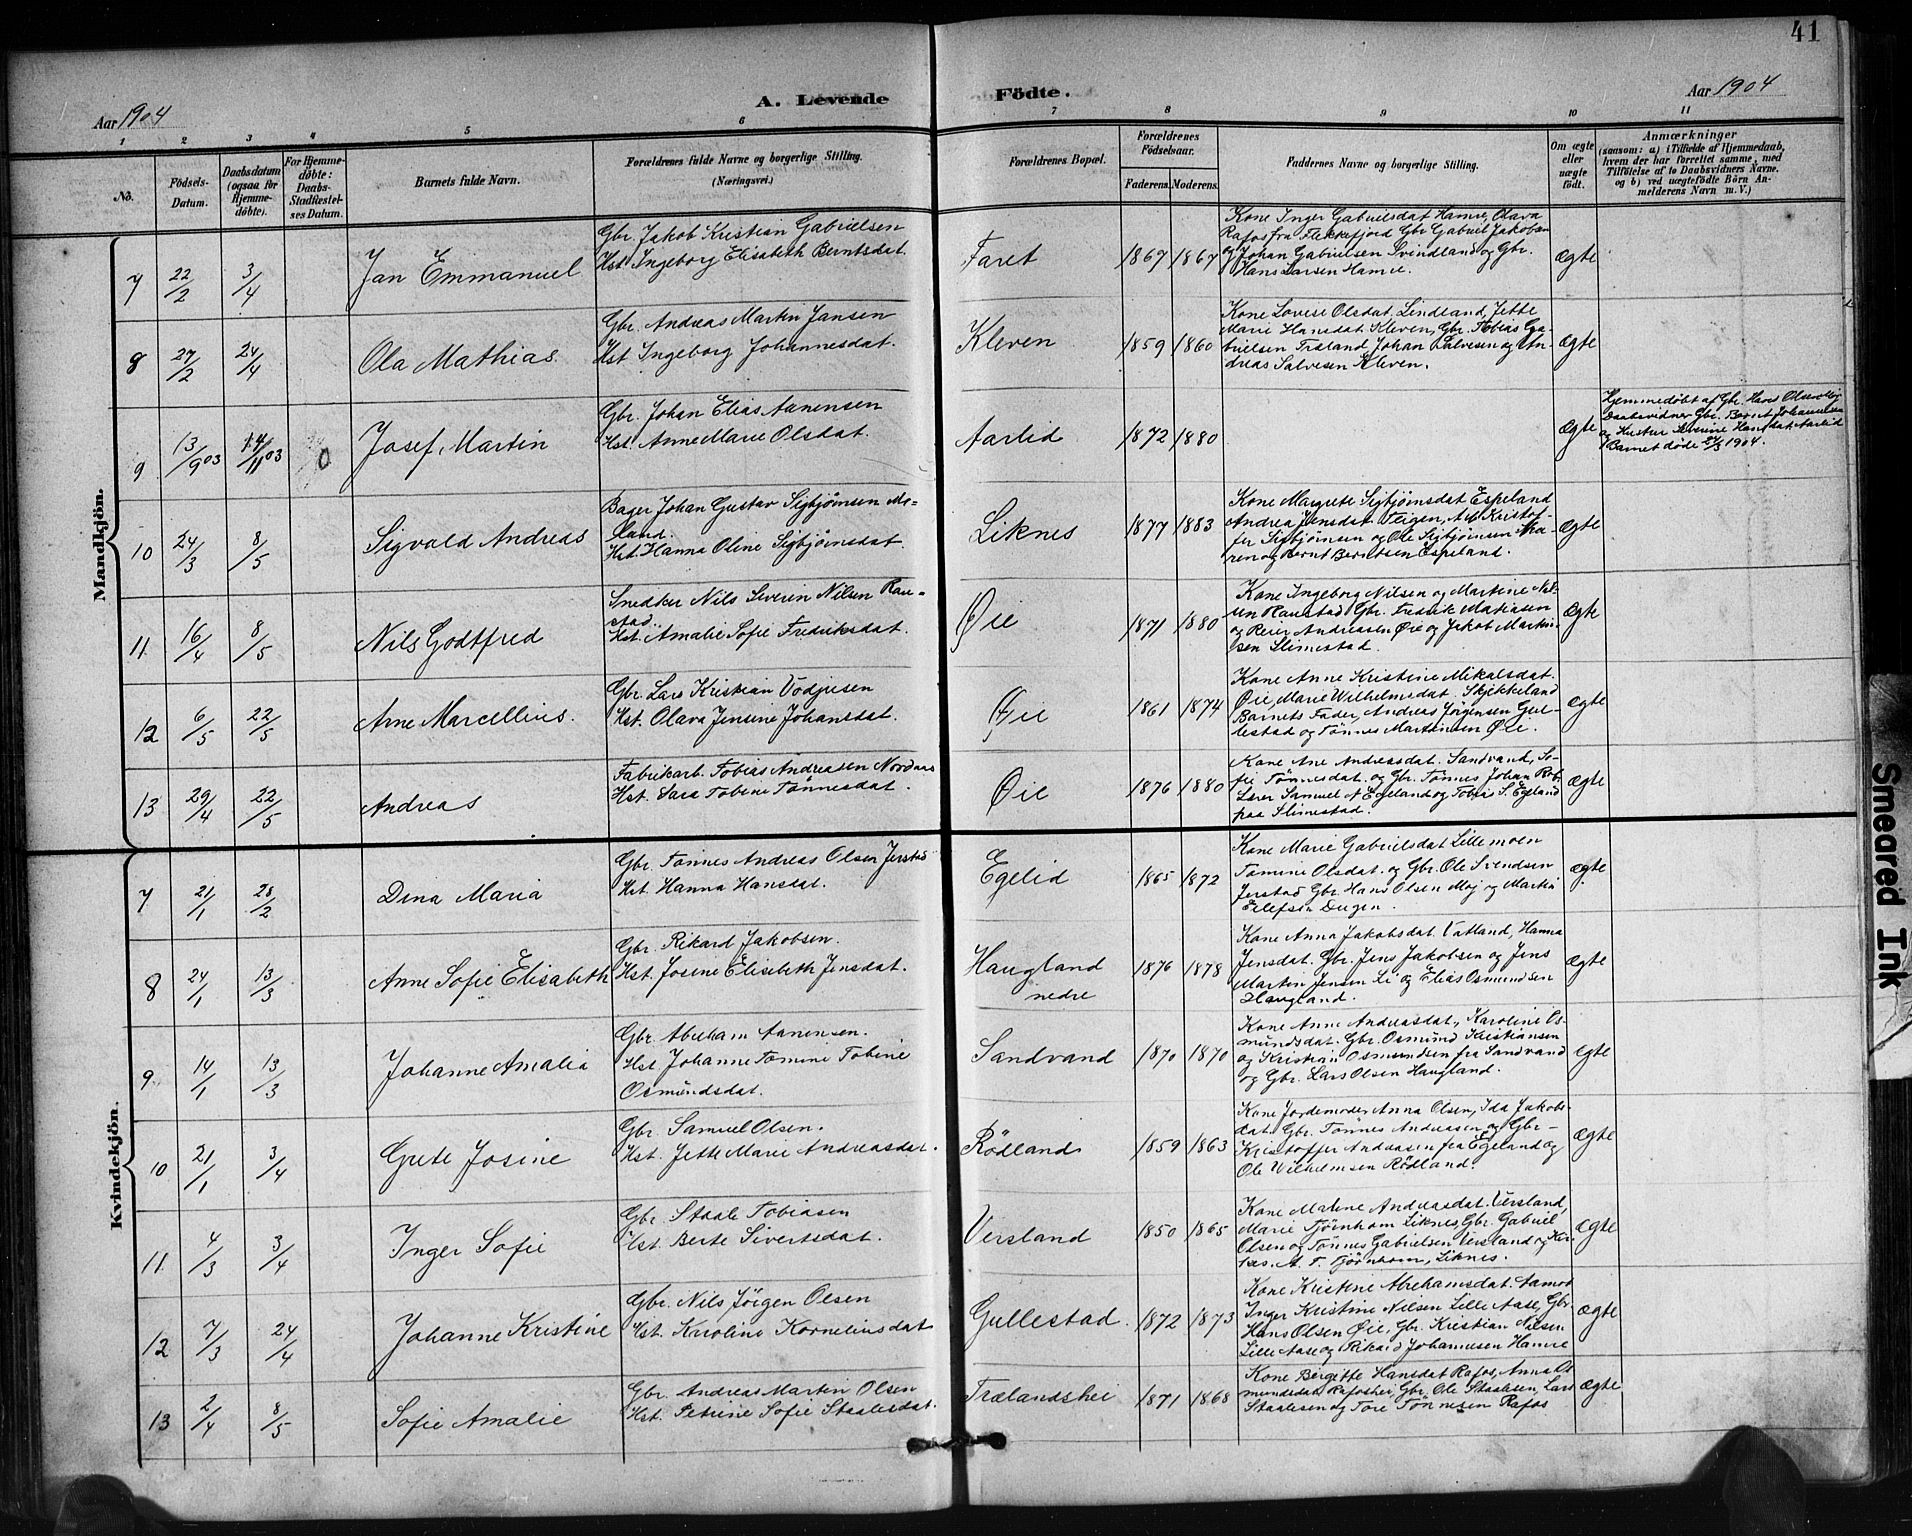 41
Aar 1904
A. Levende Födte.
Aar 1904
1 2 3 4 5 6 7 8 9 10 11
No.
Födsels-Datum.
Daabsdatum (ogsaa för Hjemme-döbte).
For Hjemme-döbte: Daabs-Stadfæstel-ses Datum.
Barnets fulde Navn.
Forældrenes fulde Navne og borgerlige Stilling. (Næringsvei.)
Forældrenes Bopæl.
Forældrenes Födselsaar.
Faderens. Moderens.
Faddernes Navne og borgerlige Stilling.
Om ægte eller uægte födt.
Anmærkninger
(saasom: a) i Tilfælde af Hjemmedaab, hvem der har forrettet samme, med Tilföielse af to Daabsvidners Navne. og b) ved uægtefödte Börn Anmelderens Navn m. V.)
Mandkjön.
7 22/2 3/4 Jan Emmanuel
Gbr. Jakob Kristian Gabrielsen
Hst. Ingeborg Elisabeth Berntsdat.
Faret 1867 1867
Kone Inger Gabrielsdat Hamre, Olava
Rafos fra Flekkefjord Gbr Gabriel Jakobsen
Johan Gabrielsen Svindland og Gbr.
Hans Larsen Hamre.
Ægte
8 27/2 24/4 Ola Mathias.
Gbr. Andreas Martin Jansen
Hst Ingeborg Johannesdat.
Kleven 1859 1860
Kone Lovise Olsdat, Lindland, Jette
Marie Hansdat Kleven, Gbr. Tobias Ga-
brielsen Træland, Johan Salvesen og An-
dreas Salvesen Kleven.
Ægte
9 13/9 03 14/11 03 0 Josef Martin
Gbr. Johan Elias Aanensen
Hst. Anne Marie Olsdat.
Aarlid 1872 1880
Ægte
Hjemmedöbt af Gbr. Hans Olsen Moj
Daabsvidner Gbr. Bernt Johannesen
og Hustru Severine Hansdat. Aarlid
Barnet döde 24/3 1904.
10 24/3 8/5 Sigvald Andreas
Bager Johan Gustav Sigbjörnsen Mo-
land.
Hst. Hanna Oline Sigbjörnsdat.
Liknes 1877 1883
Kone Margrete Sigbjörnsdat Espeland
Andrea Jensdat Feigen, Kristof-
fer Sigbjörnsen og Ole Sigbjörnsen
ren og Bernt Berntsen Espeland.
Ægte
11 16/4 8/5 Nils Godtfred
Snedker Nils Severin Nilsen Rau-
stad.
Hst. Amalie Sofie Fredriksdat.
Øie 1871 1880
Kone Ingeborg Nilsen og Martine Nil-
sen Raustad Gbr. Fredrik Matiasen
og Reier Andreasen Øie og Jakob Martin-
sen Slimestad.
Ægte
12 6/5 22/5 Arne Marcellius.
Gbr. Lars Kristian Vodjusen
Hst. Olava Jensine Johansdat.
Øie 1861 1874
Kone Anne Kristine Mikalsdat.
Øie, Marie Wilhelmsdat. Skjekkeland
Barnets Fader, Andreas Jörgensen Gul-
lestad og Tönnes Martinsen Øie.
Ægte
13 29/4 22/5 Andreas
Fabrikarb. Tobias Andreasen Nordnes
Hst. Sara Tobine Tönnesdat.
Øie 1876 1880
Kone Ane Andreasdat. Sandvand, So-
fie Tönnesdat. og Gbr. Tönnes Johan
Lærer Samuel A Egeland og Tobias S. Egeland
paa Slimestad.
Ægte
Kvindekjön.
7 21/1 28/2 Dina Maria
Gbr Tönnes Andreas Olsen Jerstad
Hst. Hanna Hansdat.
Egelid 1865 1872
Kone Marie Gabrielsdat Lillemoen
Tomine Olsdat. og Gbr. Ole Svendsen
Jerstad Gbr. Hans Olsen Moj og Martin
Eilefsen Dugen.
Ægte
8 24/1 13/3 Anne Sofie Elisabeth
Gbr. Rikard Jakobsen.
Hst. Josine Elisabeth Jensdat.
Haugland
nedre
1876 1878
Kone Anna Jakobsdat. Vatland, Hanna
Jensdat. Gbr. Jens Jakobsen og Jens
Martin Jensen Li og Elias Osmundsen
Haugland.
Ægte
9 14/1 13/3 Johanne Amalia
Gbr. Abraham Aanensen.
Hst. Johanne Tomine Tobine
Osmundsdat.
Sandvand 1870 1870
Kone Anne Andreasdat., Karoline Os-
mundsdat. Gbr. Osmund Kristiansen
og Kristian Osmundsen fra Sandvand
og Gbr. Lars Olsen Haugland.
Ægte
10 21/1 3/4 Grete Josine
Gbr. Samuel Olsen.
Hst. Jette Marie Andreasdat.
Rödland 1859 1863
Kone Jordemoder Anna Olsen, Ida Jakobs-
dat. Gbr. Tönnes Andreasen og Gbr-
Kristoffer Andreasen fra Egeland og
Ole Wilhelmsen Rödland.
Ægte
11 4/3 3/4 Inger Sofie
Gbr. Staale Tobiasen
Hst. Berte Sivertsdat.
Versland 1850 1865
Kone Malene Andreasdat. Versland,
Marie Tjörnhom Liknes, Gbr. Gabriel
Olsen og Tönnes Gabrielsen Versland og Kir-
kes. A. T. Tjörnhom, Liknes.
Ægte
12 7/3 24/4 Johanne Kristine
Gbr. Nils Jörgen Olsen
Hst. Karoline Korneliusdat
Gullestad. 1872 1873
Kone Kristine Abrahamsdat. Aamot
Inger Kristine Nilsen Lille Aase, Gbr.
Hans Olsen Øie, Gbr. Kristian Nilsen
Lille Aase og Rikard Johannesen Hamre
Ægte
13 2/4 8/5 Sofie Amalie
Gbr. Andreas Martin Olsen
Hst. Petrine Sofie Staalesdat.
Trælandshei 1871 1868
Kone Bergette Hansdat Rafos, Anna Os-
mundsdat Rafoshei, Gbr. Ole Staalesen, Lars
Staalesen og Tore Tönnesen Rafos
Ægte
Smeared Ink